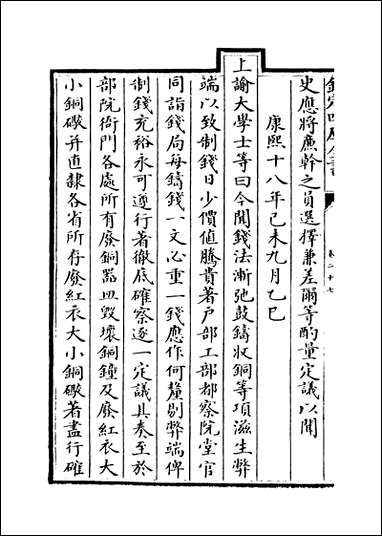 欽定四庫全書
史應將廉幹之員選擇兼差爾等酌量定議以聞
康熙十八年己未九月乙巳
上諭大學士等曰今聞錢法漸弛鼓鑄收銅等項滋生弊
端以致制錢日少價值騰貴著户部工部都察院堂官
同詣錢局每鑄錢一文必重一錢應作何釐剔弊端俾
制錢充裕永可遵行者徹底確察逐一定議具奏至於
部院衙門各處所有廢銅器皿毁壞銅鐘及廢紅衣大
小銅礮并直隸各省所存廢紅衣大小銅礮著盡行確